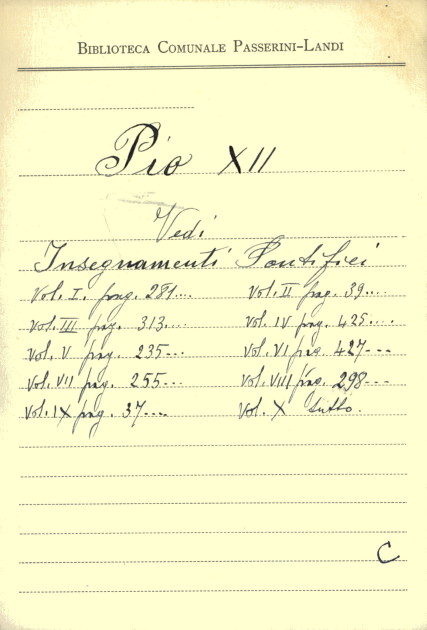 BIBLIOTECA COMUNALE PASSERINI-LANDI
Pio XII
Vedi
Insegnamenti Pontifici
Vol. I. pag. 281... Vol. II pag. 39....
Vol. III pag. 313.... Vol. IV pag. 425....
Vol. V pag. 235--- Vol. VI pag. 427---
Vol. VII pag. 255--- Vol. VIII pag. 298---
Vol. IX pag. 37---- Vol. X tutto.
C